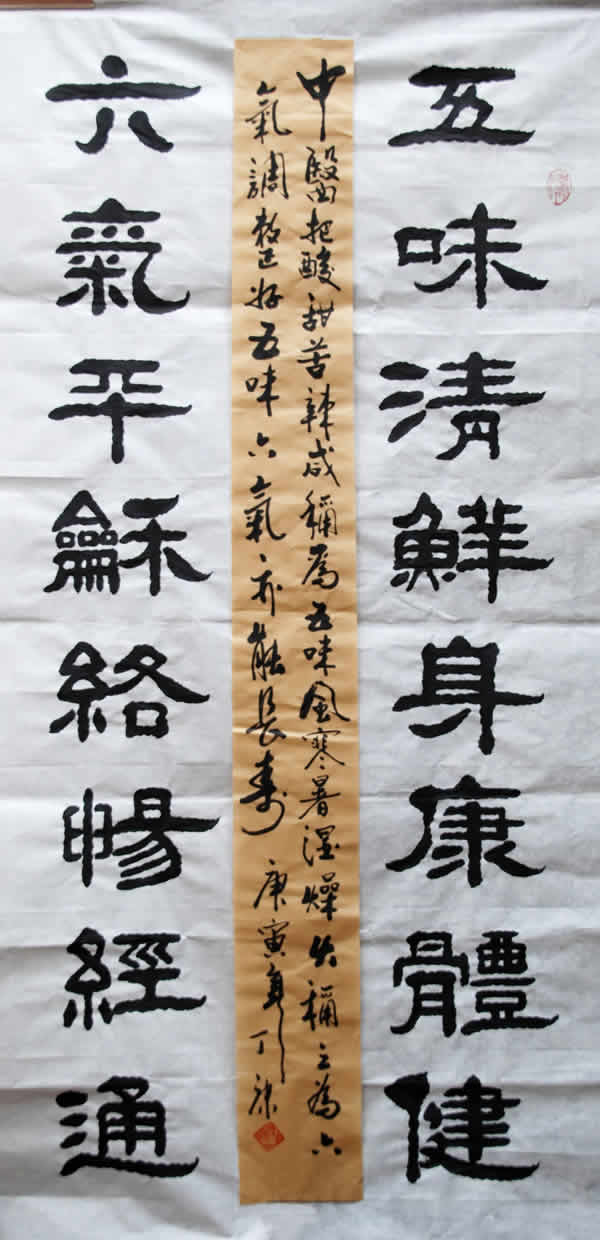 五味清鮮身康體健
中醫把酸甜苦辣咸稱為五味風寒暑湿燥火稱之為六
氣調整好五味六氣亦能長壽 庚寅年丁
六氣平龢絡暢經通